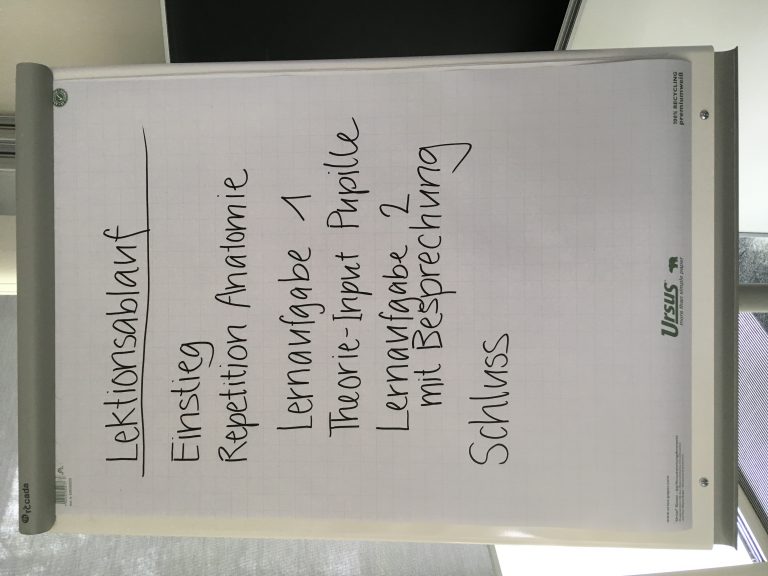 Lektionsablauf
Einstieg
Repetition Anatomie
Lernaufgabe 1
Theorie-Input Pupille
Lernaufgabe 2
mit Besprechung
Schluss
100% RECYCLING
premiumweiß
Ursus
more than simple paper
roccada